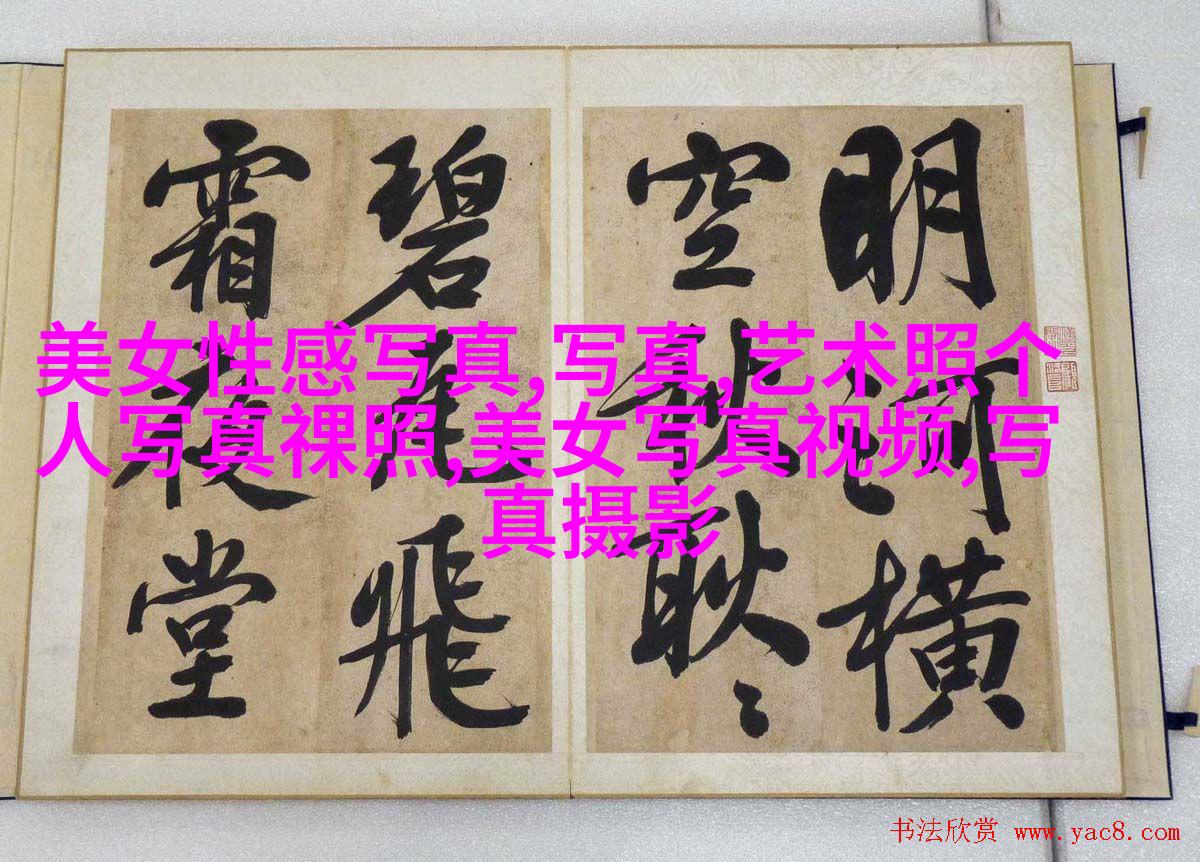 明河横
空秋耿々
碧瓦飛
霜夜堂
美女性感写真,写真,艺术照个
人写真祼照,美女写真视频,写
真摄影
书法欣赏 www.yac8.com